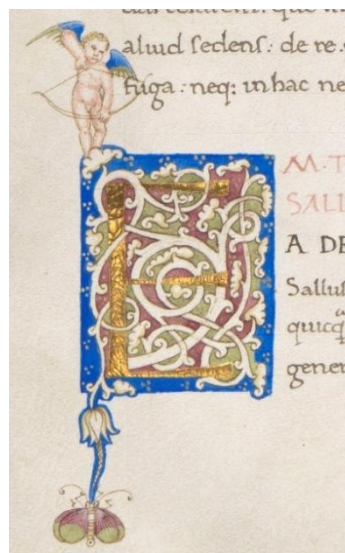 aliud sedens: de re.
fuga: neq: in hac ne
E
M·T
SALL
A DE
Sallus
quicq
gener